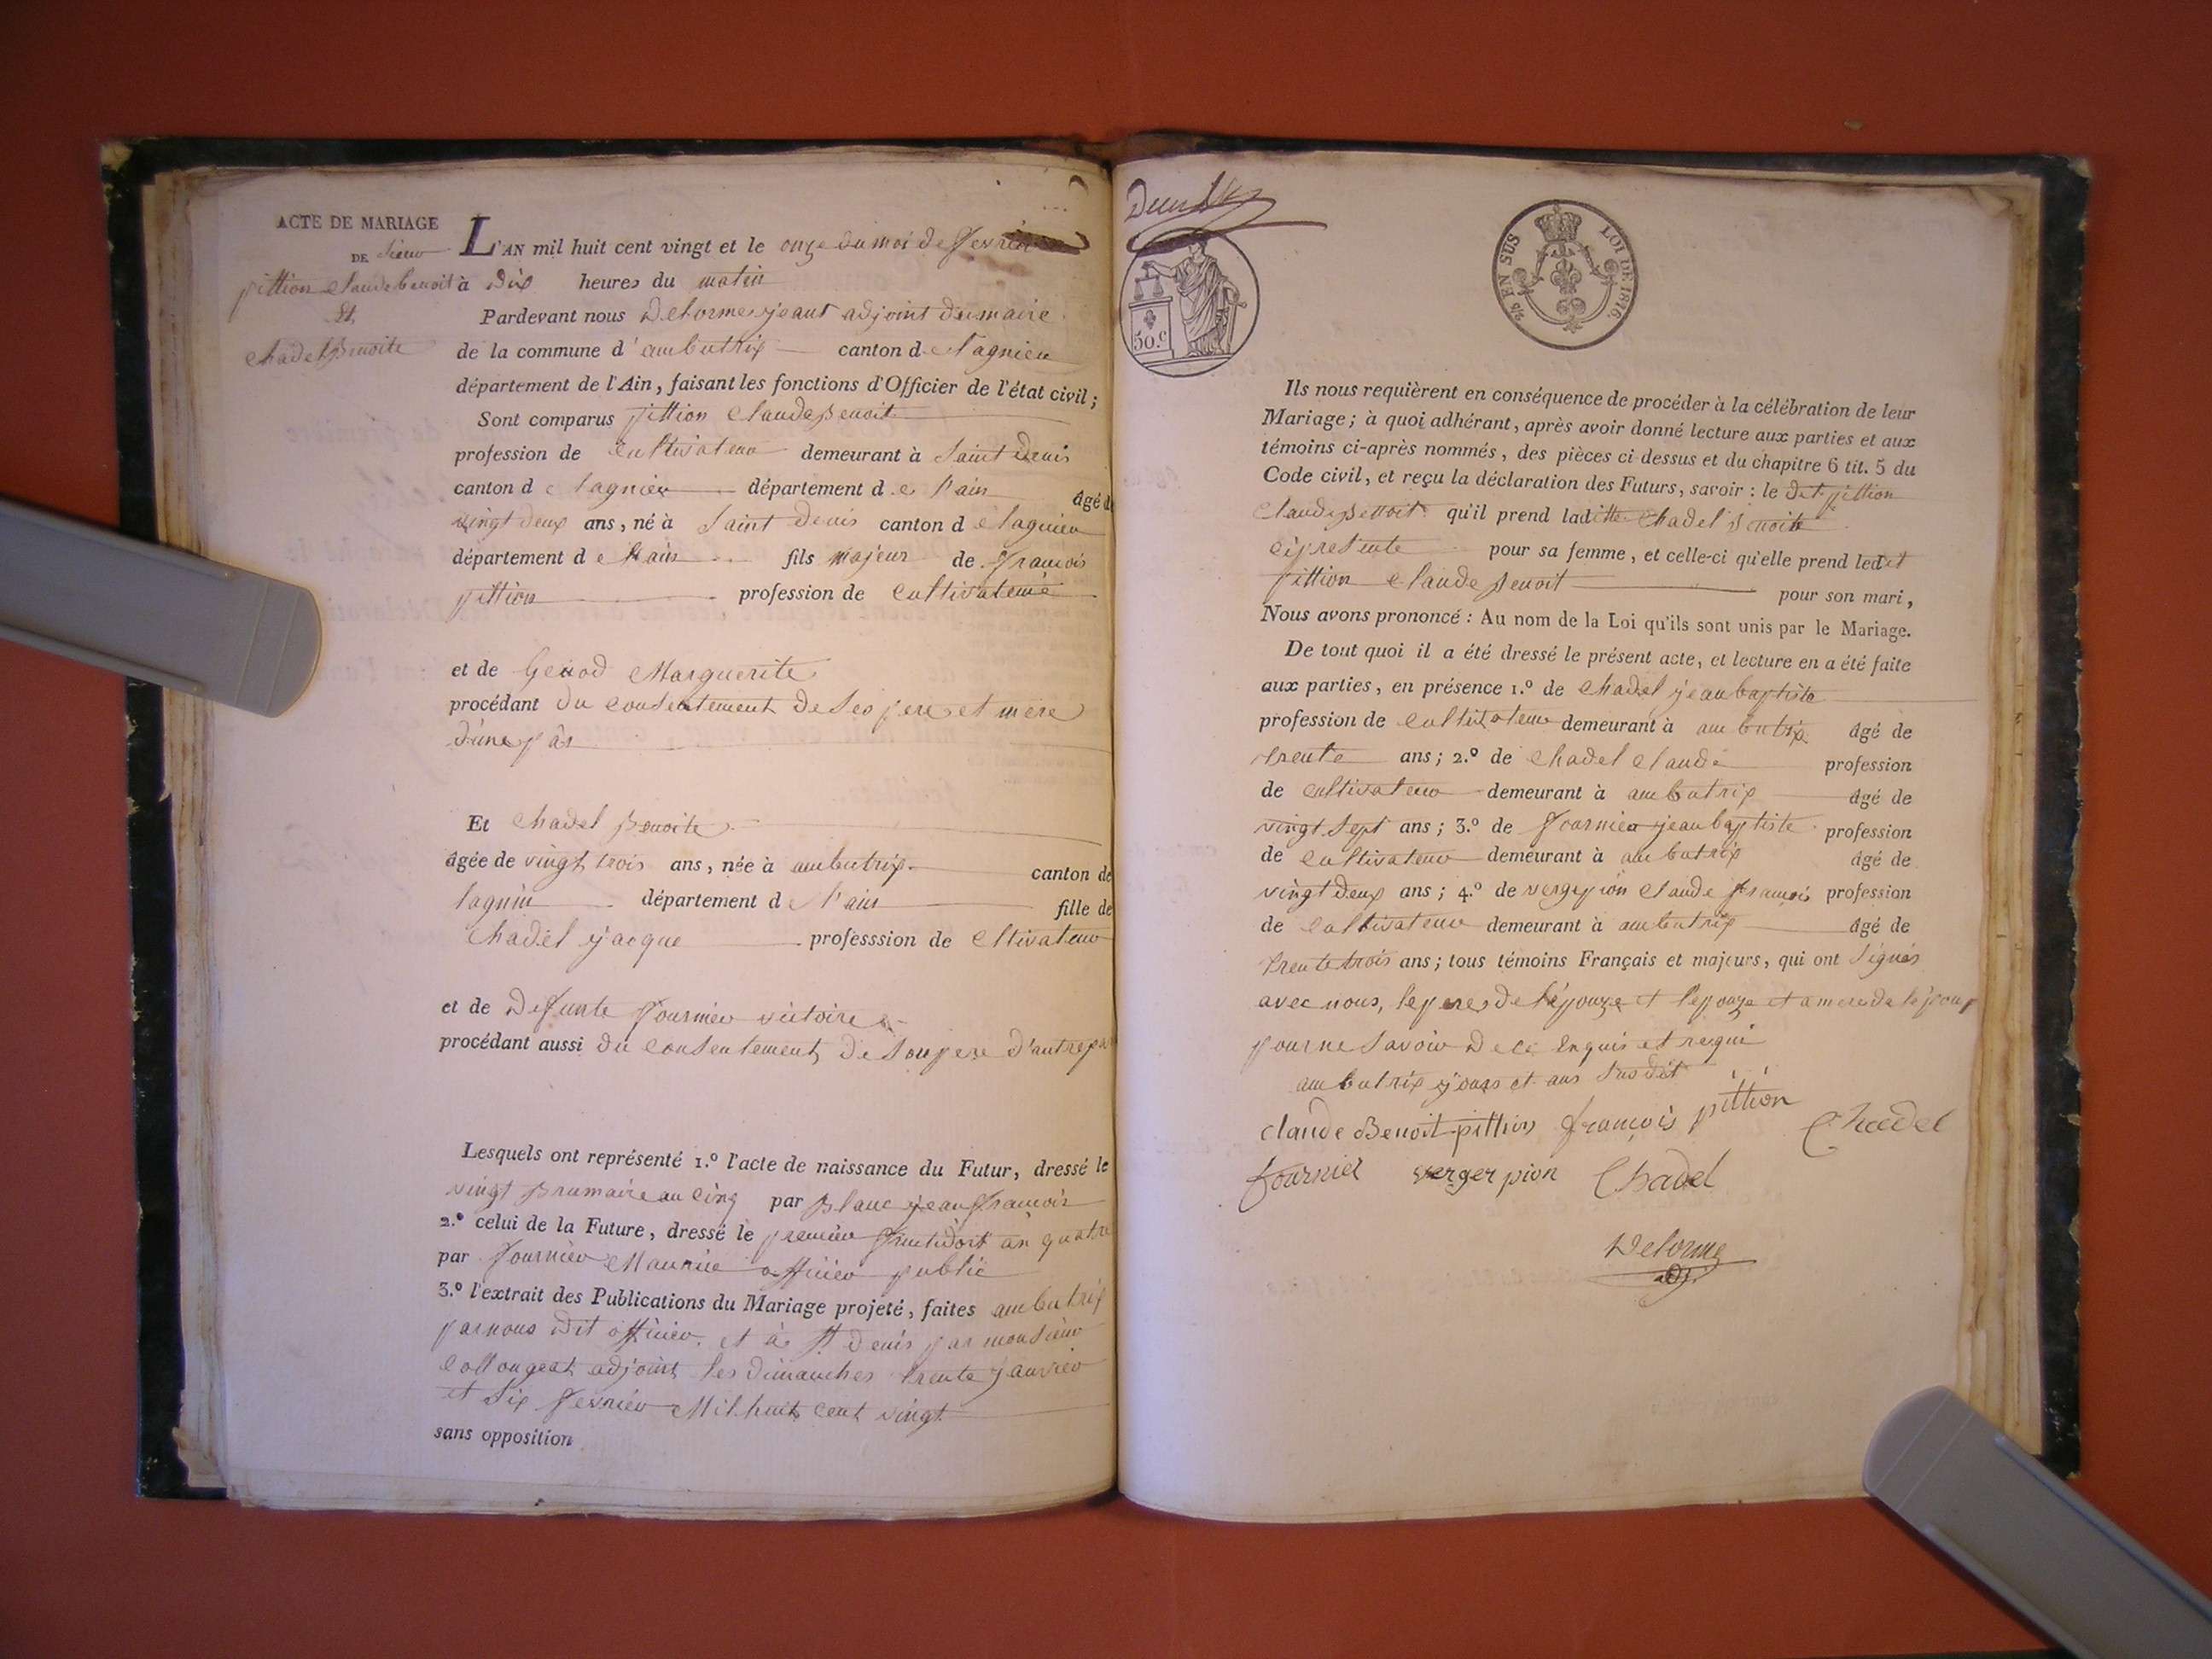 ACTE DE MARIAGE
DE Sieur
pittion claude benoit
Et
chadel Benoite
L'AN mil huit cent vingt et le onze du mois de fevrier
à dix heures du matin
Pardevant nous Delorme jean adjoint du maire
de la commune d'ambutrix canton de lagnieu
département de l'Ain, faisant les fonctions d'Officier de l'état civil;
Sont comparus pittion claude Benoit
profession de cultivateur demeurant à Saint Denis
canton de lagnieu département de l'ain âgé de
vingt deux ans, né à Saint denis canton de lagnieu
département de l'ain fils majeur de francois
pittion profession de cultivateur
et de Genod Marguerite
procédant du consentement de Ses pere et mere
d'une par
Et chadel Benoite
âgée de vingt trois ans, née à ambutrix canton de
lagniu département de l'ain fille de
chadel jacque professsion de cltivateur
et de Defunte fournier victoire
procédant aussi du consentement de Son pere d'autre par
Lesquels ont représenté 1.º l'acte de naissance du Futur, dressé le
vingt Brumaire an cinq par Blanc jean francois
2.º celui de la Future, dressé le premier fructidort an quatre
par fournier Maurice officier public
3.º l'extrait des Publications du Mariage projeté, faites ambutrix
par nous dit officier et à St denis par monsieur
collongeat adjoint les dimanches trente janvier
et Six fevrier Mil huit cent vingt
sans opposition
2/5 EN SUS LOI DE 1816.
50.c
Ils nous requièrent en conséquence de procéder à la célébration de leur
Mariage; à quoi adhérant, après avoir donné lecture aux parties et aux
témoins ci-après nommés, des pièces ci-dessus et du chapitre 6 tit. 5 du
Code civil, et reçu la déclaration des Futurs, savoir: le dit pittion
claude Benoit qu'il prend laditte chadel Benoite
cipresente pour sa femme, et celle-ci qu'elle prend ledit
pittion claude Benoit pour son mari,
Nous avons prononcé: Au nom de la Loi qu'ils sont unis par le Mariage.
De tout quoi il a été dressé le présent acte, et lecture en a été faite
aux parties, en présence 1.º de chadel jean baptiste
profession de cultivateur demeurant à ambutrix âgé de
trente ans; 2.º de chadel claude profession
de cultivateur demeurant à ambutrix âgé de
vingt Sept ans; 3.º de fournier jean baptiste profession
de cultivateur demeurant à ambutrix âgé de
vingt deux ans; 4.º de vergerpion claude francois profession
de cultivateur demeurant à ambutrix âgé de
trente trois ans; tous témoins Français et majeurs, qui ont Signés
avec nous, le pere de l'épouze et l'epouze et a mere de l'époux
pour ne Savoir de ce enquis et requi
ambutrix jours et ans Susdit
claude Benoit pittion françois pittion Chadel
fournier vergerpion Chadel
Delorme
adj.